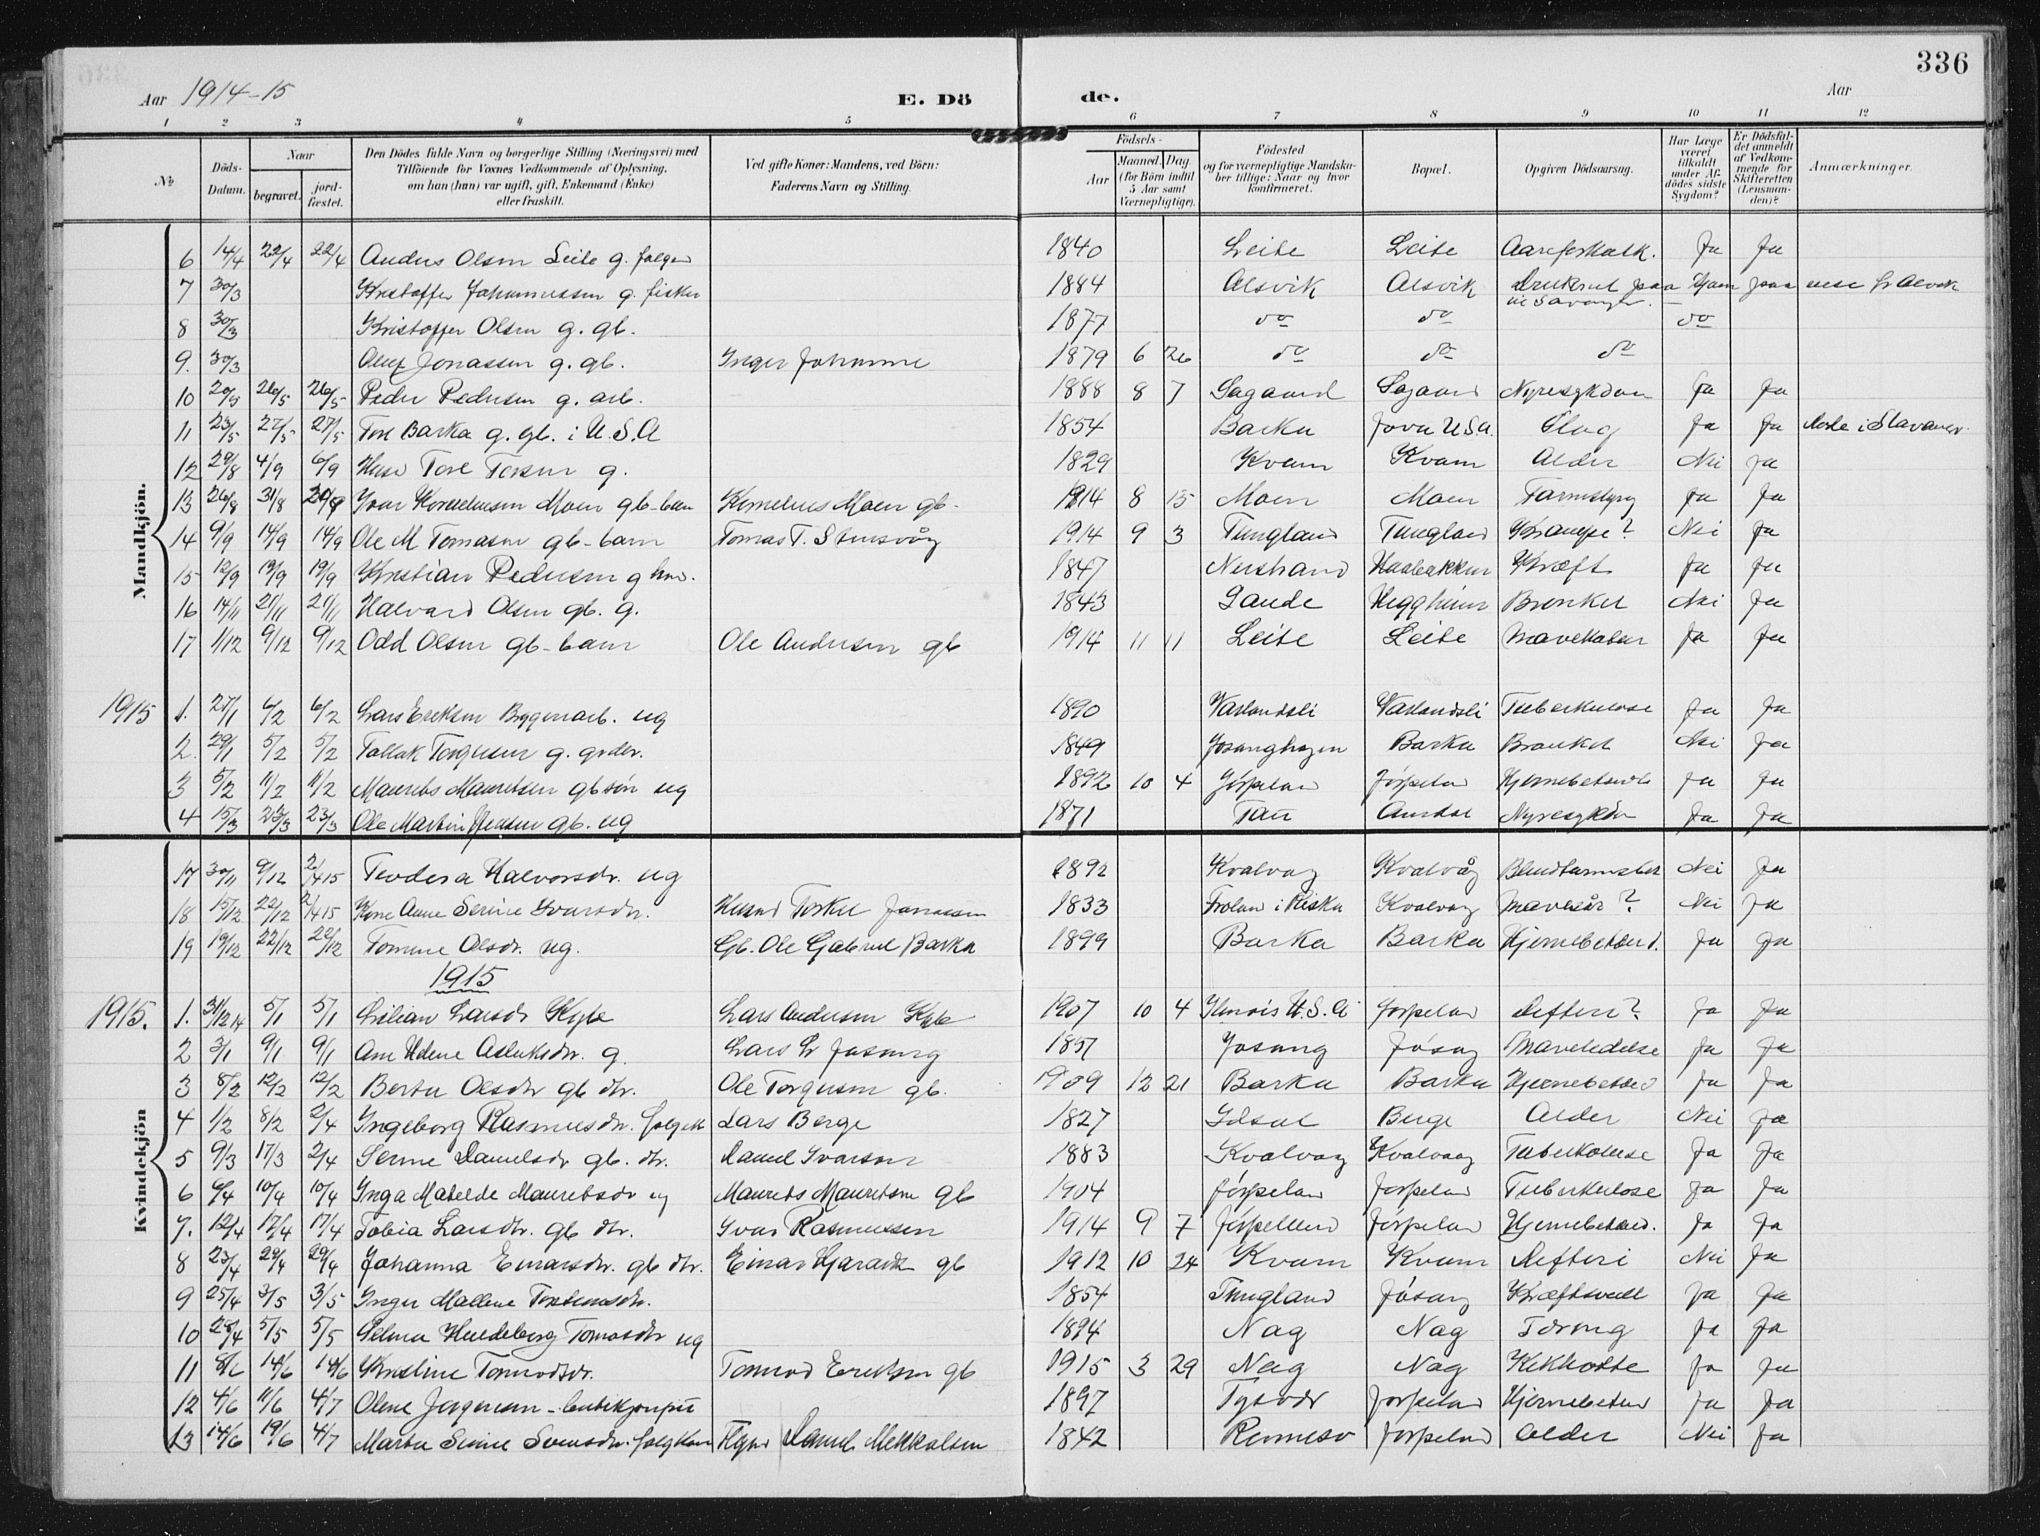 336
Aar 1914-15 E. Dö de. Aar
1 2 3 4 5 6 7 8 9 10 11 12
№ Döds-Datum. Naar begravet. jord-fæstet. Den Dödes fulde Navn og borgerlige Stilling (Næringsvei) med Tilföiende for Voxnes Vedkommende af Oplysning, om han (hun) var ugift, gift, Enkemand (Enke) eller fraskilt. Ved gifte Koner: Mandens, ved Börn: Faderens Navn og Stilling. Födsels- Aar Maaned. Dag. (for Börn indtil 5 Aar samt Værnepligtige). Födested og for værnepligtige Mandskaber tillige: Naar og hvor konfirmeret. Bopæl. Opgiven Dödsaarsag. Har Læge været tilkaldt under Afdödes sidste Sygdom? Er Dödsfaldet anmeldt af Vedkommende for Skifteretten (Lensmanden)? Anmærkninger.
Mandkjön.
6 14/4 22/4 22/4 Anders Olsen Leite g. 1840 Leite Leite Aareforkalk. Ja Ja
7 30/3 Kristoffer Johannessen g. fisker 1884 Alsvik Alsvik
8 30/3 Kristoffer Olsen g. gb. 1877 do do do
9. 30/3 Jonassen g. gb. Inger Johanne 1879 6 26 do do do
10 20/5 26/5 26/5 Peder Pedersen g. arb. 1888 8 7 Sagaard Sagaard Nyresykdom Ja Ja
11 23/5 27/5 27/5 Tore Barka g. gb. i U.S.A 1854 Barka Jova U.S.A. Slag Ja Ja i Stavanger
12 29/8 4/9 6/9 Tore g. 1829 Kvam Kvam Alder Nei Ja
13 26/8 31/8 Ivar Kornelius Moen gb-barn Kornelius Moen gb. 1914 8 15 Moen Moen Ja Ja
14 9/9 14/9 14/9 Ole M Tomasen gb-barn Tomas T. Stensvåg 1914 9 3 Tungland Tungland Krampe? Nei Ja
15 12/9 19/9 19/9 Kristian Pedersen g 1847 Nerstrand Kræft Ja Ja
16 14/11 21/11 21/11 Halvard Olsen gb. g. 1843 Sande Heggheim Bronkit Nei Ja
17 1/12 9/12 9/12 Odd Olsen gb-barn Ole Andersen gb 1914 11 11 Leite Leite Mavekatar Ja Ja
1915 1. 27/1 6/2 6/2 Lars Eriksen Byggenarb. ug 1890 Varlandsli Varlandsli Tuberkulose Ja Ja
2. 29/1 5/2 5/2 Tollak Torgersen g. 1849 Barka Bronkit Nei Ja
3 5/2 11/2 11/2 Maurits Mauritsen gb sön ug 1892 10 4 Jörpeland Jörpeland Ja Ja
4 15/3 23/3 23/3 Ole Martin Jensen gb. ug 1871 Tau Nyresykdom Ja Ja
Kvindekjön
17 30/11 9/12 2/4 15 Teodora Halvorsdr. ug 1892 Kvalvåg Kvalvåg Nei Ja
18 15/12 22/12 2/4 15 Kone Anne Serine Ivarsdr. Husmd Torkel Jonassen 1833 i Riska Kvalvåg Mavesår? Nei Ja
19 19/12 22/12 22/12 Tomine Olsdr. ug. Gb. Ole Gabriel Barka 1899 Barka Barka Hjernebetænd. Ja Ja
1915
1915. 1. 31/12 14 5/1 5/1 Lilian Larsdr Lars Andersen 1907 10 4 Ilinois U.S.A Jörpeland Difteri? Ja Ja
2 3/1 9/1 9/1 Ane Helene Aslaksdr. g. Lars L Jøsang 1857 Jøsang Jøsang Ja Ja
3 8/2 12/2 12/2 Berta Olsdr gb dtr. Ole Torgersen gb. 1909 12 21 Barka Barka Hjernebetænd Ja Ja
4 1/2 8/2 2/4 Ingeborg Rasmusdr. folgek Lars Berge 1827 Idsal Berge Alder Nei Ja
5 9/3 17/3 2/4 Serine Danielsdr gb. dtr. Daniel Ivarson 1883 Kvalvaag Kvalvaag Tuberkulose Ja Ja
6 6/4 10/4 10/4 Inga Matelde Mauritsdr ug Maurits Mauritsen gb 1904 Jörpeland Jörpeland Tuberkulose Ja Ja
7. 12/4 17/4 17/4 Tobia Larsdtr. gb dtr. Ivar Rasmussen 1914 9 7 Jörpeland Jörpeland Hjernebetænd. Ja Ja
8 23/4 29/4 29/4 Johanna Einarsdr. gb dtr. Einar gb 1912 10 24 Kvam Kvam Difteri Nei Ja
9 25/4 3/5 3/5 Inger Mallene Torsteinsdr. 1854 Tungland Jøsang Kræftsvulst Ja Ja
10 28/4 5/5 5/5 Selma Huldeborg Tomasdr ug 1894 Nag Nag Tæring Ja Ja
11 8/6 14/6 14/6 Kristine Tormodsdr. Tormod Eriksen gb 1915 3 29 Nag Nag Kikhoste Ja Ja
12 4/6 11/6 4/7 Olene Jørgensen - butikjomfru 1897 Tysvær Jørpeland Hjernebetænd Ja Ja
13 14/6 19/6 4/7 Marta Serine Svensdr. folgkone Daniel Mikkalsen 1842 Rennesø Jørpeland Alder Nei Ja